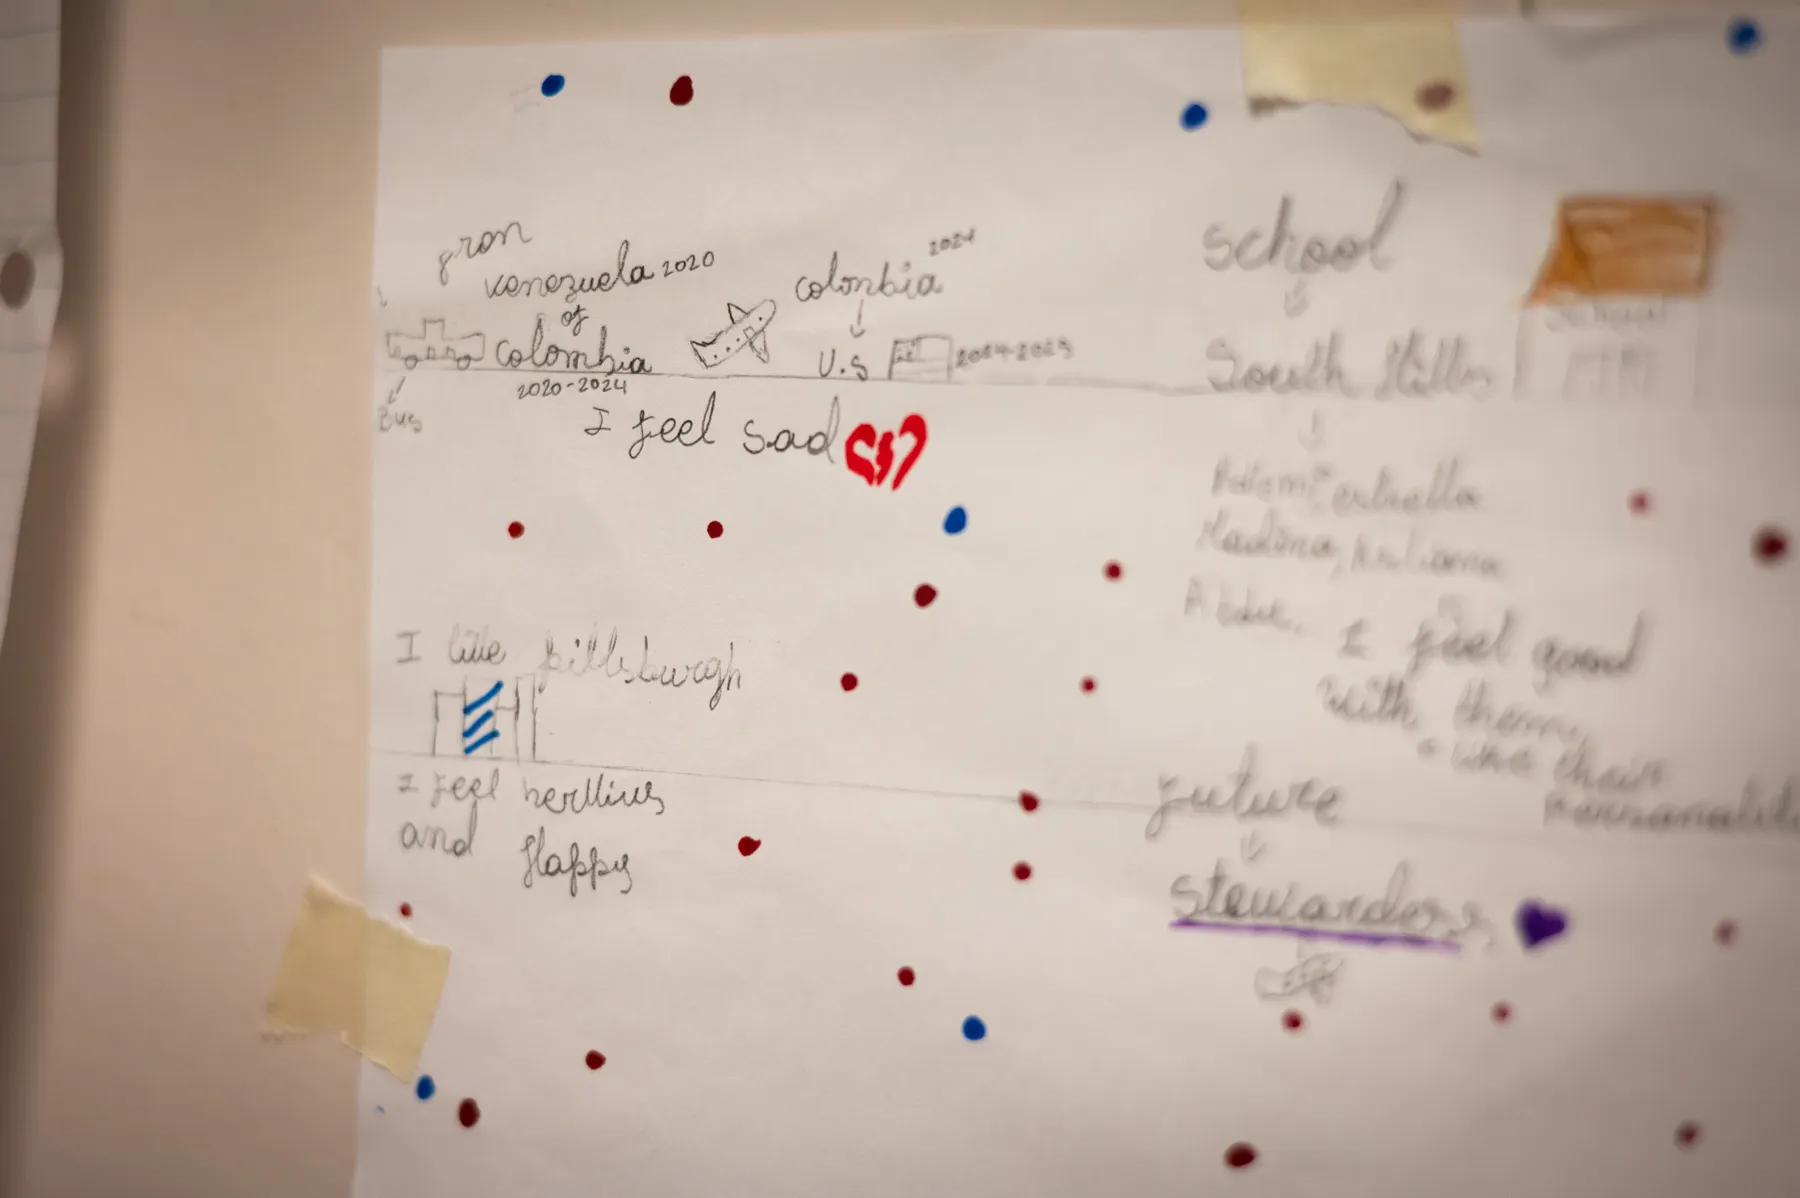 gron
venezuela 2020
of
colombia
2020-2024
Bus
colombia 2024
U.S 2024-2025
I feel sad
I like pittsburgh
I feel nerllius
and Happy
school
South Hills
school
I feel good
with them,
like thair
personalit
future
stewardess